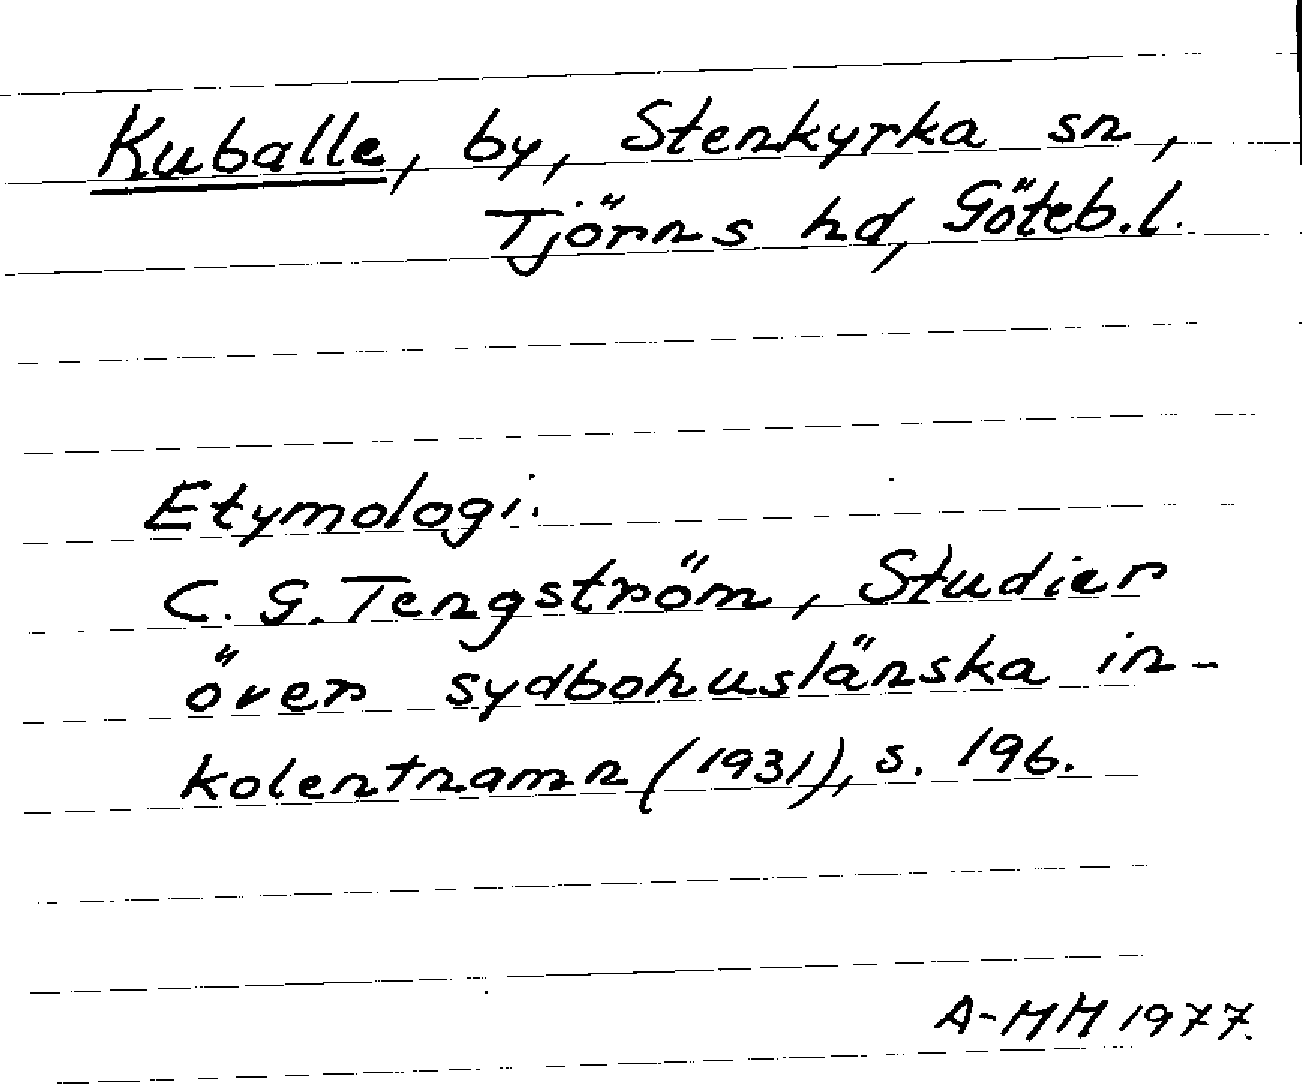 Kuballe, by, Stenkyrka sn,
Tjörns hd, Göteb.l.
Etymologi.
C. G. Tengström, Studier
över sydbohuslänska in-
kolentnamn (1931), s. 196.
A-MH 1977.